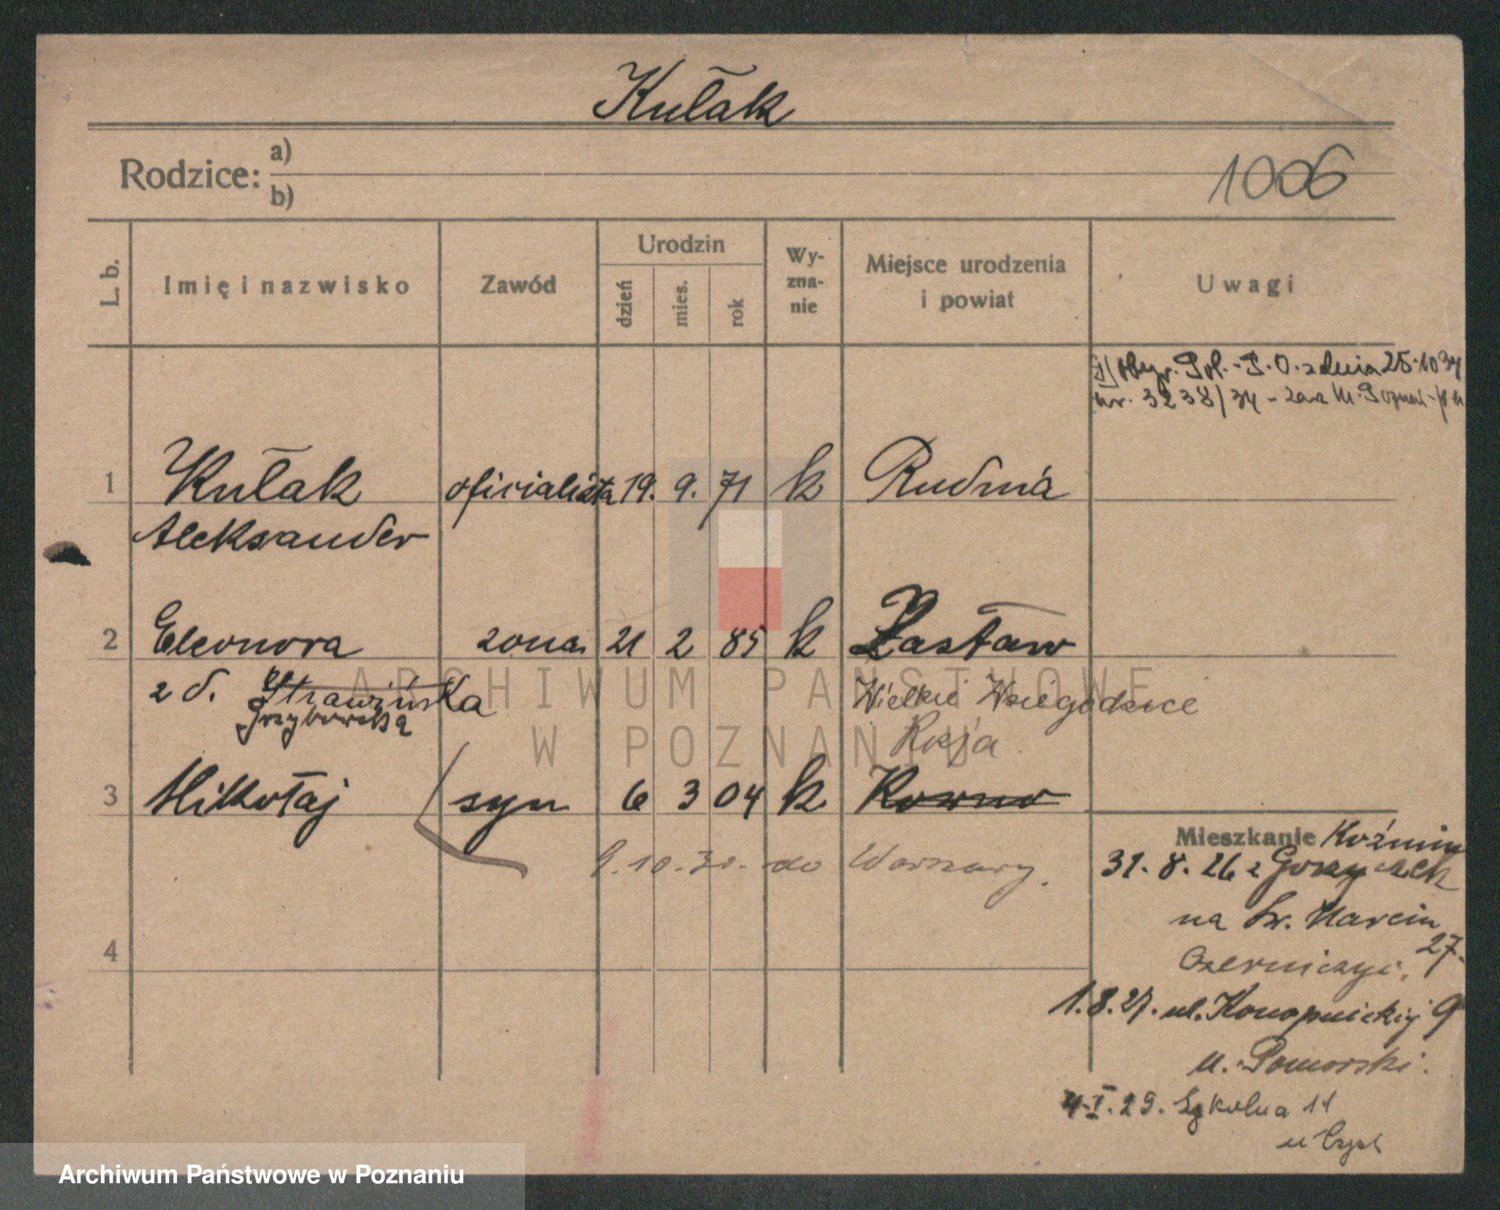 Kułak
Rodzice: a)
b)
1006
L. b.
Imię i nazwisko
Zawód
Urodzin
dzień
mies.
rok
Wy-
zna-
nie
Miejsce urodzenia
i powiat
Uwagi
z dnia 25.10.34
nr. 3238/34
1 Kułak oficialista 19. 9. 71 k Rudnia
Aleksander
2 Eleonora żona 21 2 85 k Zasław
z d. Strawińska Wielkie
Grzybowska Rosja
3 Mikołaj syn 6 3 04 k Kowno
9.10.30. do Warszawy.
4
Mieszkanie Koźmin
31.8.26 z
na Św. Marcin
27.
1.8.27. ul. Konopnickiej 9
u. Pomorski.
4.I.29. Szkolna 11
u
ARCHIWUM PAŃSTWOWE
W POZNANIU
Archiwum Państwowe w Poznaniu